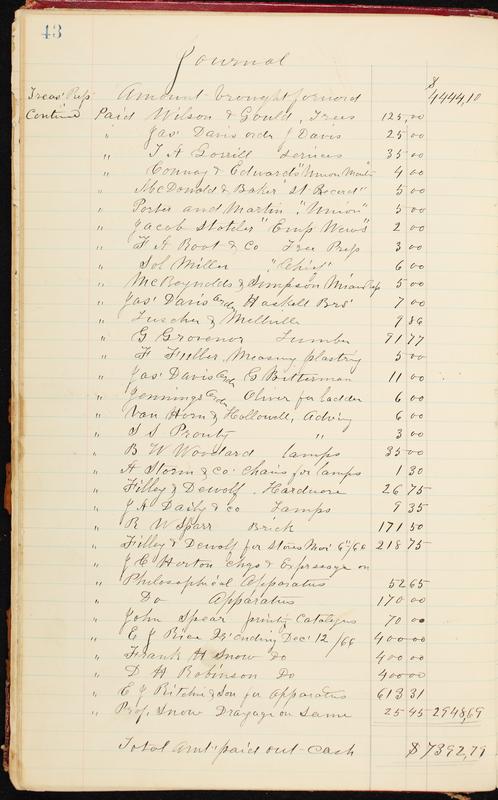 43
Journal
$
Treas' Rep' Amount brought forward 4444,10
Contin'd Paid Wilson & Gould, Trees 125,00
" Jas' Davis order J Davis 25 00
" T A Gorrill Services 35 00
" Conway & Edwards "Union 4 00
" McDonald & Baker "St Record" 5 00
" Porter and Martin "Union" 5 00
" Jacob Stotler "Emp News" 2 00
" F A Root & Co Free Press 3 00
" Sol Miller "Chief" 6 00
" McReynolds & Simpson 5 00
" Jas' Davis Ordr Haskell Bro's 7 00
" Luscher & Mellville 9 86
" G Grovenor Lumber 91 77
" F Fuller Measuring plastring 5 00
" Jas' Davis Ordr C Bitterman 11 00
" Jennings Ordr Oliver for ladder 6 00
" Van Horn & Hallowell, Adving 6 00
" S S Prouty " 3 00
" B W Woodard lamps 35 00
" A Storm & co. Chairs for lamps 1 30
" Filley & Dewolf Hardware 26 75
" J A Daily & co Lamps 9 35
" R W Sparr Brick 171 50
" Filley & Dewolf for Stoves Nov' 6"/66 218 75
" J C Horton Chgs & Expressage on
" Philosophical Apparatus 52 65
" Do Apparatus 170 00
" John Spear printg Catalogues 70 00
" E J Rice ending Dec' 12 /66 400 00
" Frank H Snow Do 400 00
" D H Robinson Do 400 00
" E J Ritchie & Son for apparatus 613 31
" Prof. Snow Drayage on Same 25 45 2948,69
Total Amt' paid out - cash $7392,79